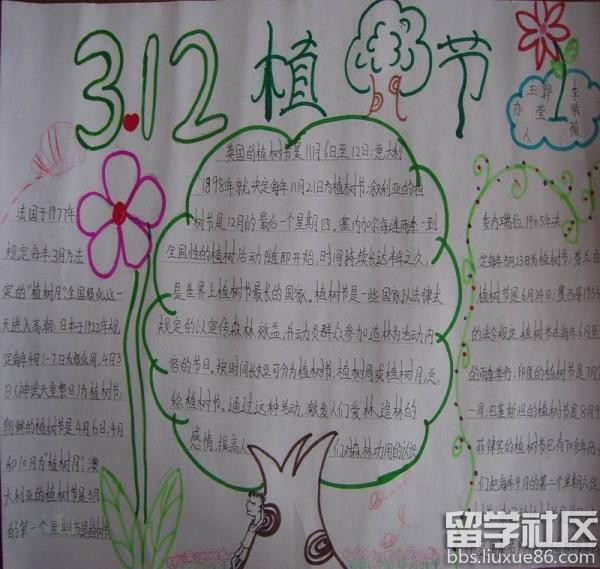 3.12 植树节
办人
王翠莹
李紫薇
法国于1977年
规定每年3月为法
定的"植树月",全国绿化这一
天进入高潮;日本于1922年规
定每年4月1-7日为绿化周,4月3
日(神武天皇祭日)为植树节;
朝鲜的植树节是4月6日,4月
和10月为"植树月";澳
大利亚的植树节是5月
的第一个星期五是植树节
英国的植树节是11月6日至12日;意大利
1898年就决定每年11月21日为植树节;叙利亚的植
树节是12月的最后一个星期四。塞内加尔每逢雨季一到
全国性的植树活动随即开始,时间持续长达半年之久,
是世界上植树节最长的国家。植树节是一些国家以法律式
规定的以宣传森林效益,并动员群众参加造林为活动内
容的节日。按时间长短可分为植树节,植树周或植树月,总
称植树节。通过这种活动,激发人们爱林、造林的
感情,提高人们对森林功用的认识
委内瑞拉1905年决
定每年5月23日为植树节;芬兰的
植树节是6月24日;墨西哥1954
的法令规定,植树节在每年6月至
的雨季举行;印度的植树节是7月
一周;巴基斯坦的植树节是8月9
菲律宾的植树节已有70多年历
们把每年9月的第二个星期六定
留学社区
bbs.liuxue86.com